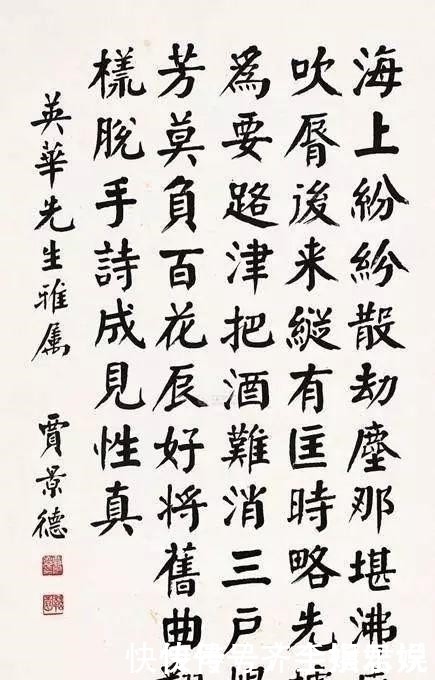 海上紛紛散劫塵那堪沸
吹脣後来縱有匡時略先
爲要路津把酒難消三戶
芳莫負百花辰好将舊曲
樣脫手詩成見性真
英華先生雅属 賈景德